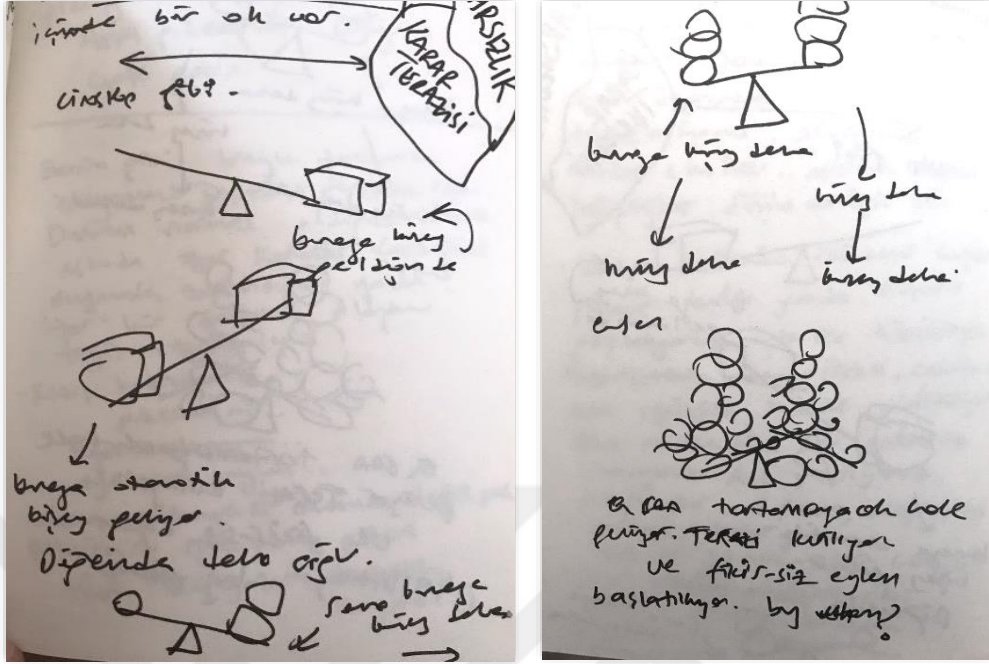 içinde bir ok var.
KARARSIZLIK
KARAR
TERAZİSİ
gibi.
buraya bişey
geldiğinde
buraya otomatik
bişey geliyor.
Diğerinde daha ağır.
sonra buraya
bişey daha
buraya bişey daha
bişey daha
bişey daha
bişey daha
en son
tartamayacak hale
geliyor. TERAZİ kırılıyor
ve fikir-siz eylem
başlatılıyor. by